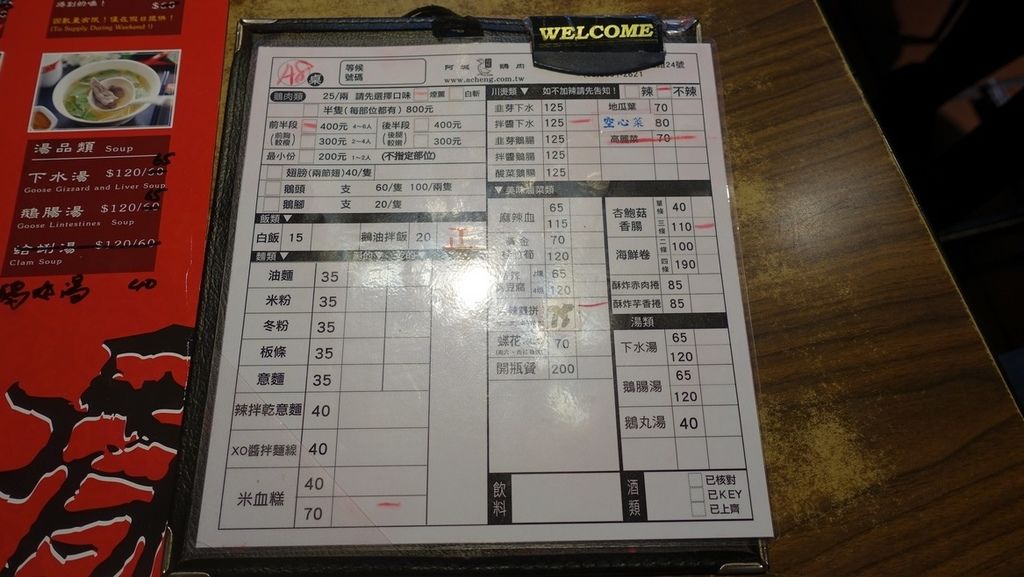 因數量有限！僅在假日提供！
(To Supply During Weekend !)
湯品類 Soup
下水湯 $120/65
Goose Gizzard and Liver Soup
鵝腸湯 $120/65
Goose Lintestines Soup
蛤蜊湯 $120/60
Clam Soup
40
WELCOME
A8 桌
等候
號碼
阿城鵝肉
www.acheng.com.tw
24號
鵝肉類 25/兩 請先選擇口味 煙燻 白斬
半隻(每部位都有) 800元
前半段 400元 4~6人 後半段 400元
(前胸較瘦) 300元 2~4人 (後腿較嫩) 300元
最小份 200元 1~2人 (不指定部位)
翅膀(兩節翅)40/隻
鵝頭 支 60/隻 100/兩隻
鵝腳 支 20/隻
飯類▼
白飯 15 鵝油拌飯 20 正
麵類▼
油麵 35
米粉 35
冬粉 35
板條 35
意麵 35
辣拌乾意麵 40
XO醬拌麵線 40
米血糕 40
70
川燙類▼ 如不加辣請先告知！ 辣 不辣
韭芽下水 125 地瓜葉 70
拌醬下水 125 空心菜 80
韭芽鵝腸 125 高麗菜 70
拌醬鵝腸 125
酸菜鵝腸 125
▼美味滷菜類
麻辣血 65
115
黃金 70
筍 120
豆腐 65
120
拼 75
蝶花 70
開瓶費 200
杏鮑菇香腸 單條 40
三條 110
海鮮卷 二條 100
四條 190
酥炸赤肉捲 85
酥炸芋香捲 85
湯類
下水湯 65
120
鵝腸湯 65
120
鵝丸湯 40
飲料
酒類
已核對
已KEY
已上齊